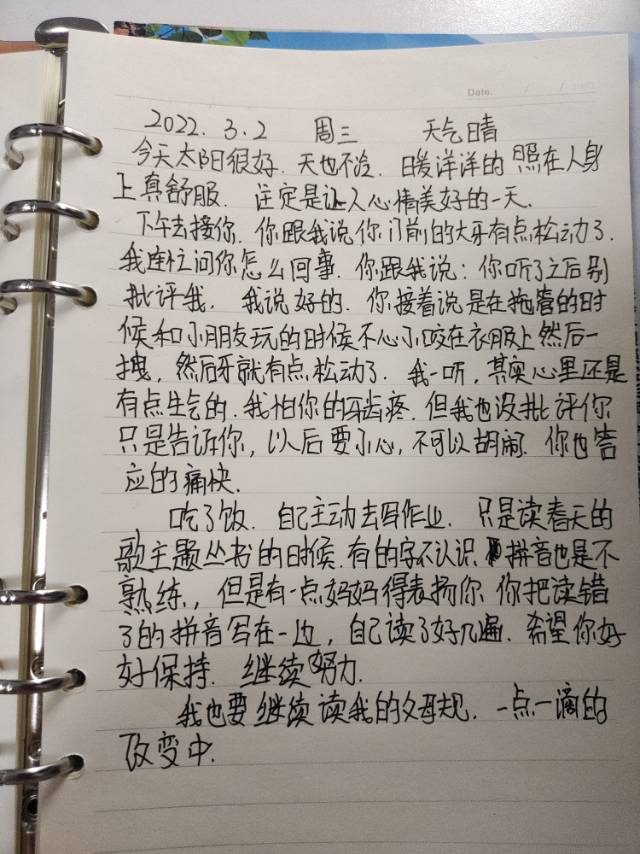 Date.
2022.3.2 周三 天气晴
今天太阳很好.天也不冷.暖洋洋的照在人身
上真舒服.注定是让人心情美好的一天.
下午去接你.你跟我说你门前的大牙有点松动了.
我连忙问你怎么回事.你跟我说:你听了之后别
批评我.我说好的.你接着说是在拖着的时
候和小朋友玩的时候不心小咬在衣服上然后一
拽,然后牙就有点松动了.我一听,其实心里还是
有点生气的.我怕你的牙齿疼.但我也没批评你
只是告诉你,以后要小心,不可以胡闹.你也答
应的痛快.
吃了饭.自己主动去写作业.只是读春天的
歌主题丛书的时候.有的字不认识.拼音也是不
熟练.,但是有一点妈妈得表扬你.你把读错
了的拼音写在一边,自己读了好几遍.希望你好
好保持.继续努力.
我也要继续读我的父母规.一点一滴的
改变中.